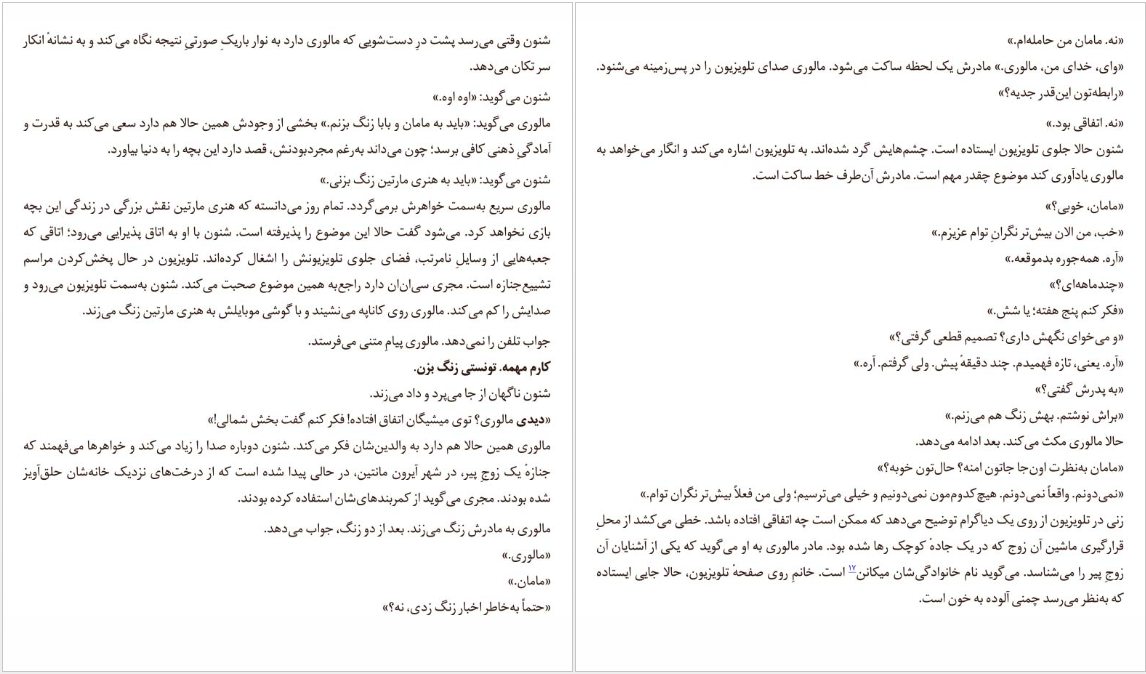 شنون وقتی می‌رسد پشت درِ دست‌شویی که مالوری دارد به نوار باریکِ صورتیِ نتیجه نگاه می‌کند و به نشانهٔ انکار
سر تکان می‌دهد.
شنون می‌گوید: «اوه اوه.»
مالوری می‌گوید: «باید به مامان و بابا زنگ بزنم.» بخشی از وجودش همین حالا هم دارد سعی می‌کند به قدرت و
آمادگیِ ذهنی کافی برسد؛ چون می‌داند به‌رغم مجردبودنش، قصد دارد این بچه را به دنیا بیاورد.
شنون می‌گوید: «باید به هنری مارتین زنگ بزنی.»
مالوری سریع به‌سمت خواهرش برمی‌گردد. تمام روز می‌دانسته که هنری مارتین نقش بزرگی در زندگی این بچه
بازی نخواهد کرد. می‌شود گفت حالا این موضوع را پذیرفته است. شنون با او به اتاق پذیرایی می‌رود؛ اتاقی که
جعبه‌هایی از وسایلِ نامرتب، فضای جلوی تلویزیونش را اشغال کرده‌اند. تلویزیون در حال پخش‌کردن مراسم
تشییع‌جنازه است. مجری سی‌ان‌ان دارد راجع‌به همین موضوع صحبت می‌کند. شنون به‌سمت تلویزیون می‌رود و
صدایش را کم می‌کند. مالوری روی کاناپه می‌نشیند و با گوشی موبایلش به هنری مارتین زنگ می‌زند.
جواب تلفن را نمی‌دهد. مالوری پیامِ متنی می‌فرستد.
کارم مهمه. تونستی زنگ بزن.
شنون ناگهان از جا می‌پرد و داد می‌زند.
«دیدی مالوری؟ توی میشیگان اتفاق افتاده! فکر کنم گفت بخش شمالی!»
مالوری همین حالا هم دارد به والدین‌شان فکر می‌کند. شنون دوباره صدا را زیاد می‌کند و خواهرها می‌فهمند که
جنازهٔ یک زوجِ پیر، در شهر آیرون مانتین، در حالی پیدا شده است که از درخت‌های نزدیک خانه‌شان حلق‌آویز
شده بودند. مجری می‌گوید از کمربندهای‌شان استفاده کرده بودند.
مالوری به مادرش زنگ می‌زند. بعد از دو زنگ، جواب می‌دهد.
«مالوری.»
«مامان.»
«حتماً به‌خاطر اخبار زنگ زدی، نه؟»
«نه. مامان من حامله‌ام.»
«وای، خدای من، مالوری.» مادرش یک لحظه ساکت می‌شود. مالوری صدای تلویزیون را در پس‌زمینه می‌شنود.
«رابطه‌تون این‌قدر جدیه؟»
«نه. اتفاقی بود.»
شنون حالا جلوی تلویزیون ایستاده است. چشم‌هایش گرد شده‌اند. به تلویزیون اشاره می‌کند و انگار می‌خواهد به
مالوری یادآوری کند موضوع چقدر مهم است. مادرش آن‌طرف خط ساکت است.
«مامان، خوبی؟»
«خب، من الان بیش‌تر نگرانِ توام عزیزم.»
«آره. همه‌جوره بدموقعه.»
«چندماهه‌ای؟»
«فکر کنم پنج هفته؛ یا شش.»
«و می‌خوای نگهش داری؟ تصمیم قطعی گرفتی؟»
«آره. یعنی، تازه فهمیدم. چند دقیقهٔ پیش. ولی گرفتم. آره.»
«به پدرش گفتی؟»
«براش نوشتم. بهش زنگ هم می‌زنم.»
حالا مالوری مکث می‌کند. بعد ادامه می‌دهد.
«مامان به‌نظرت اون‌جا جاتون امنه؟ حال‌تون خوبه؟»
«نمی‌دونم. واقعاً نمی‌دونم. هیچ‌کدوم‌مون نمی‌دونیم و خیلی می‌ترسیم؛ ولی من فعلاً بیش‌تر نگران توام.»
زنی در تلویزیون از روی یک دیاگرام توضیح می‌دهد که ممکن است چه اتفاقی افتاده باشد. خطی می‌کشد از محلِ
قرارگیری ماشین آن زوج که در یک جادهٔ کوچک رها شده بود. مادر مالوری به او می‌گوید که یکی از آشنایان آن
زوجِ پیر را می‌شناسد. می‌گوید نام خانوادگی‌شان میکانن۱۷ است. خانمِ روی صفحهٔ تلویزیون، حالا جایی ایستاده
که به‌نظر می‌رسد چمنی آلوده به خون است.